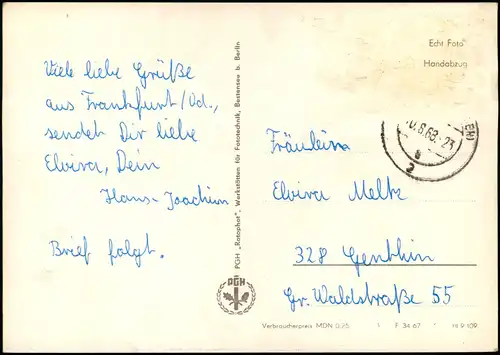 Viele liebe Grüße
aus Frankfurt/Od.,
sendet Dir liebe
Elvira, Dein
Hans-Joachim
Brief folgt.
PGH „Rotophot", Werkstätten für Fototechnik, Bestensee b. Berlin
PGH
Echt Foto
Handabzug
.8.68.-23
a
2
Fräulein
Elvira Meltz
328 Genthin
Gr. Waldstraße 55
Verbraucherpreis MDN 0,25 F 34/67 9/109